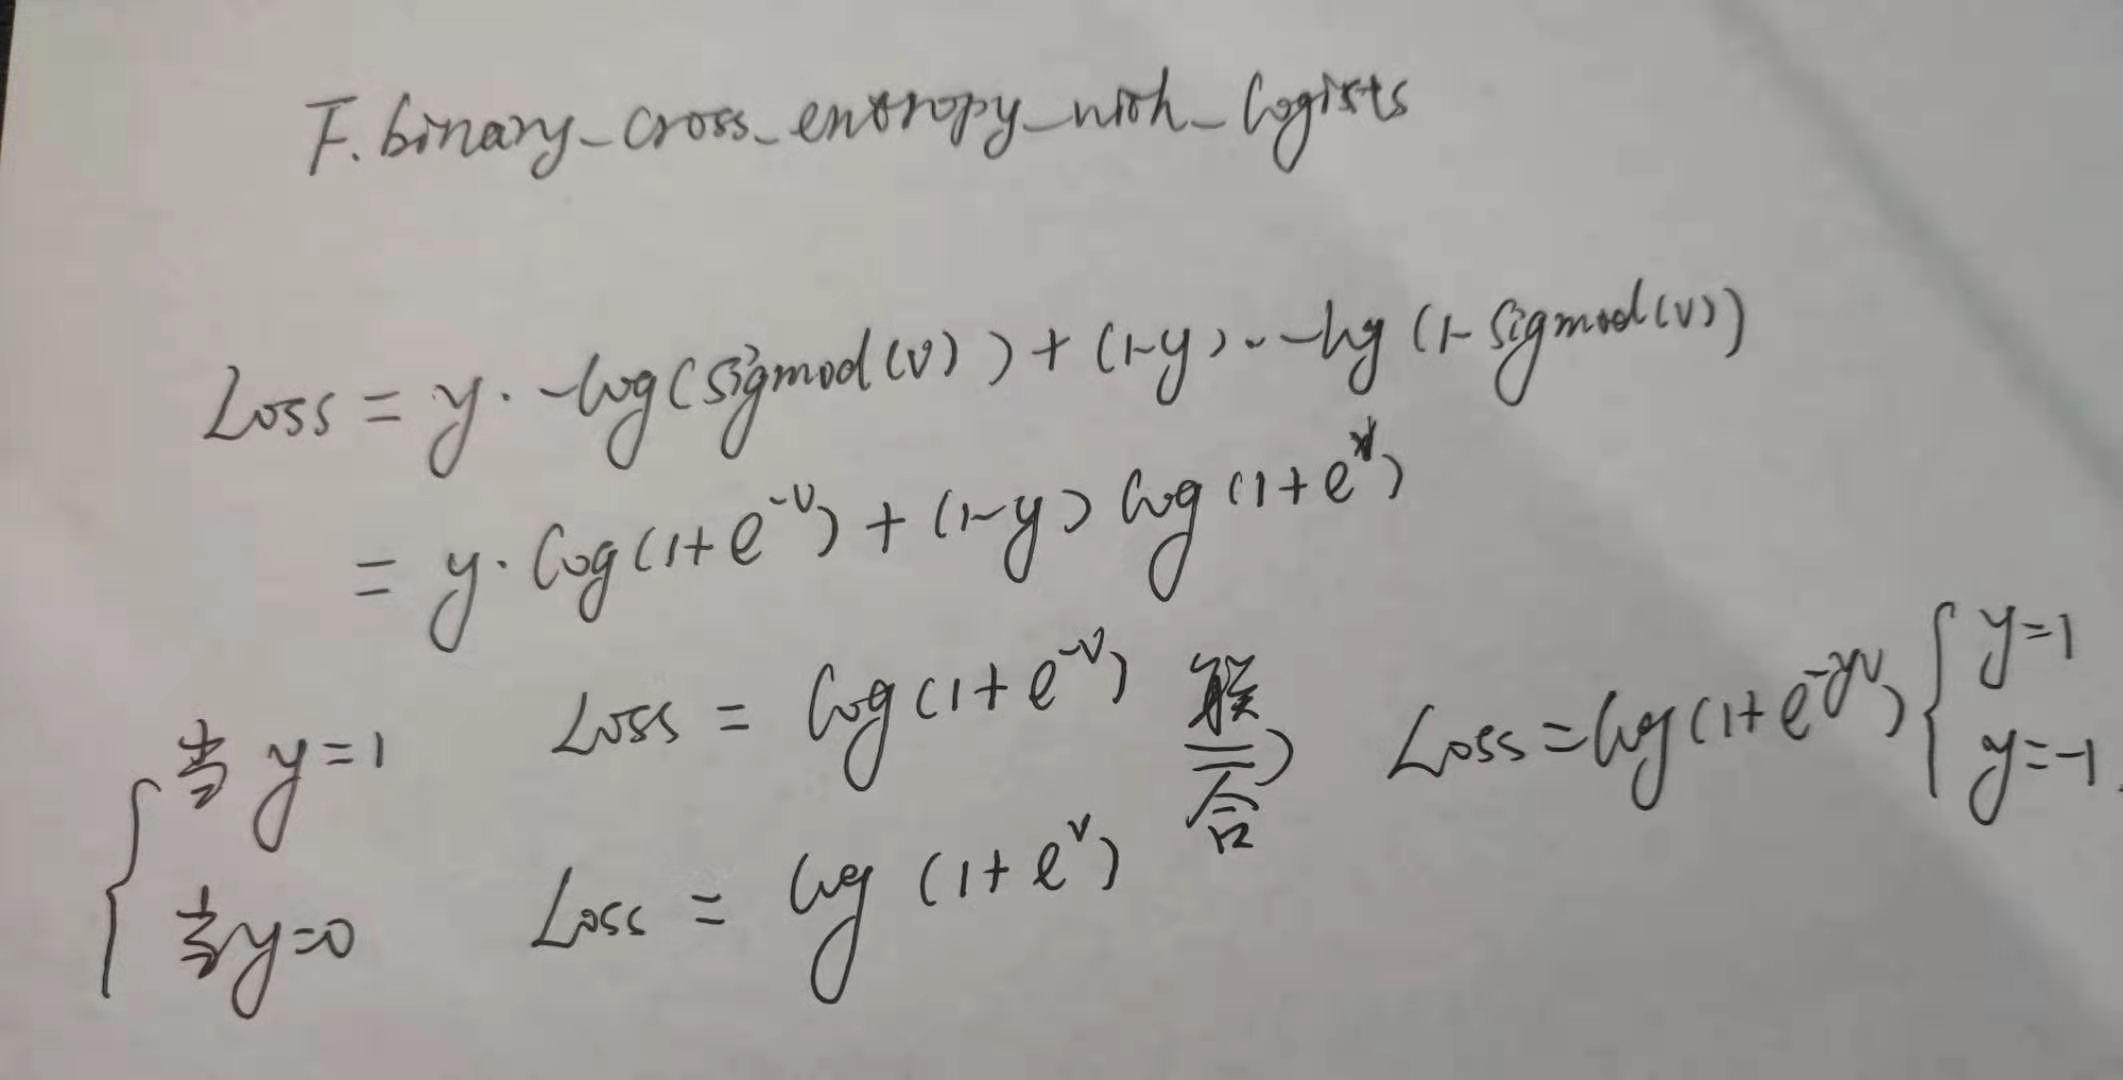 F.binary_cross_entropy_with_logists
Loss = y · -log(sigmod(v)) + (1-y) · -log(1-sigmod(v))
= y · log(1+e^-v) + (1-y) log(1+e^v)
当 y=1 Loss = log(1+e^-v)
联合 ⇒ Loss = log(1+e^-yv) { y=1
y=-1
当 y=0 Loss = log(1+e^v)